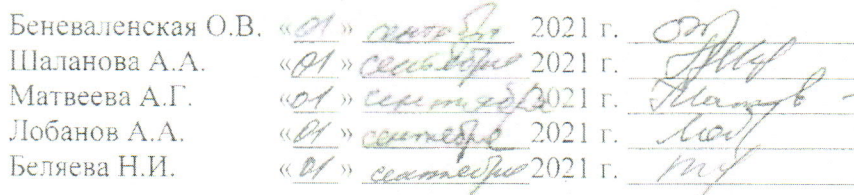 Беневаленская О.В. «01» сентября 2021 г.
Шаланова А.А. «01» сентября 2021 г.
Матвеева А.Г. «01» сентября 2021 г.
Лобанов А.А. «01» сентября 2021 г.
Беляева Н.И. «01» сентября 2021 г.